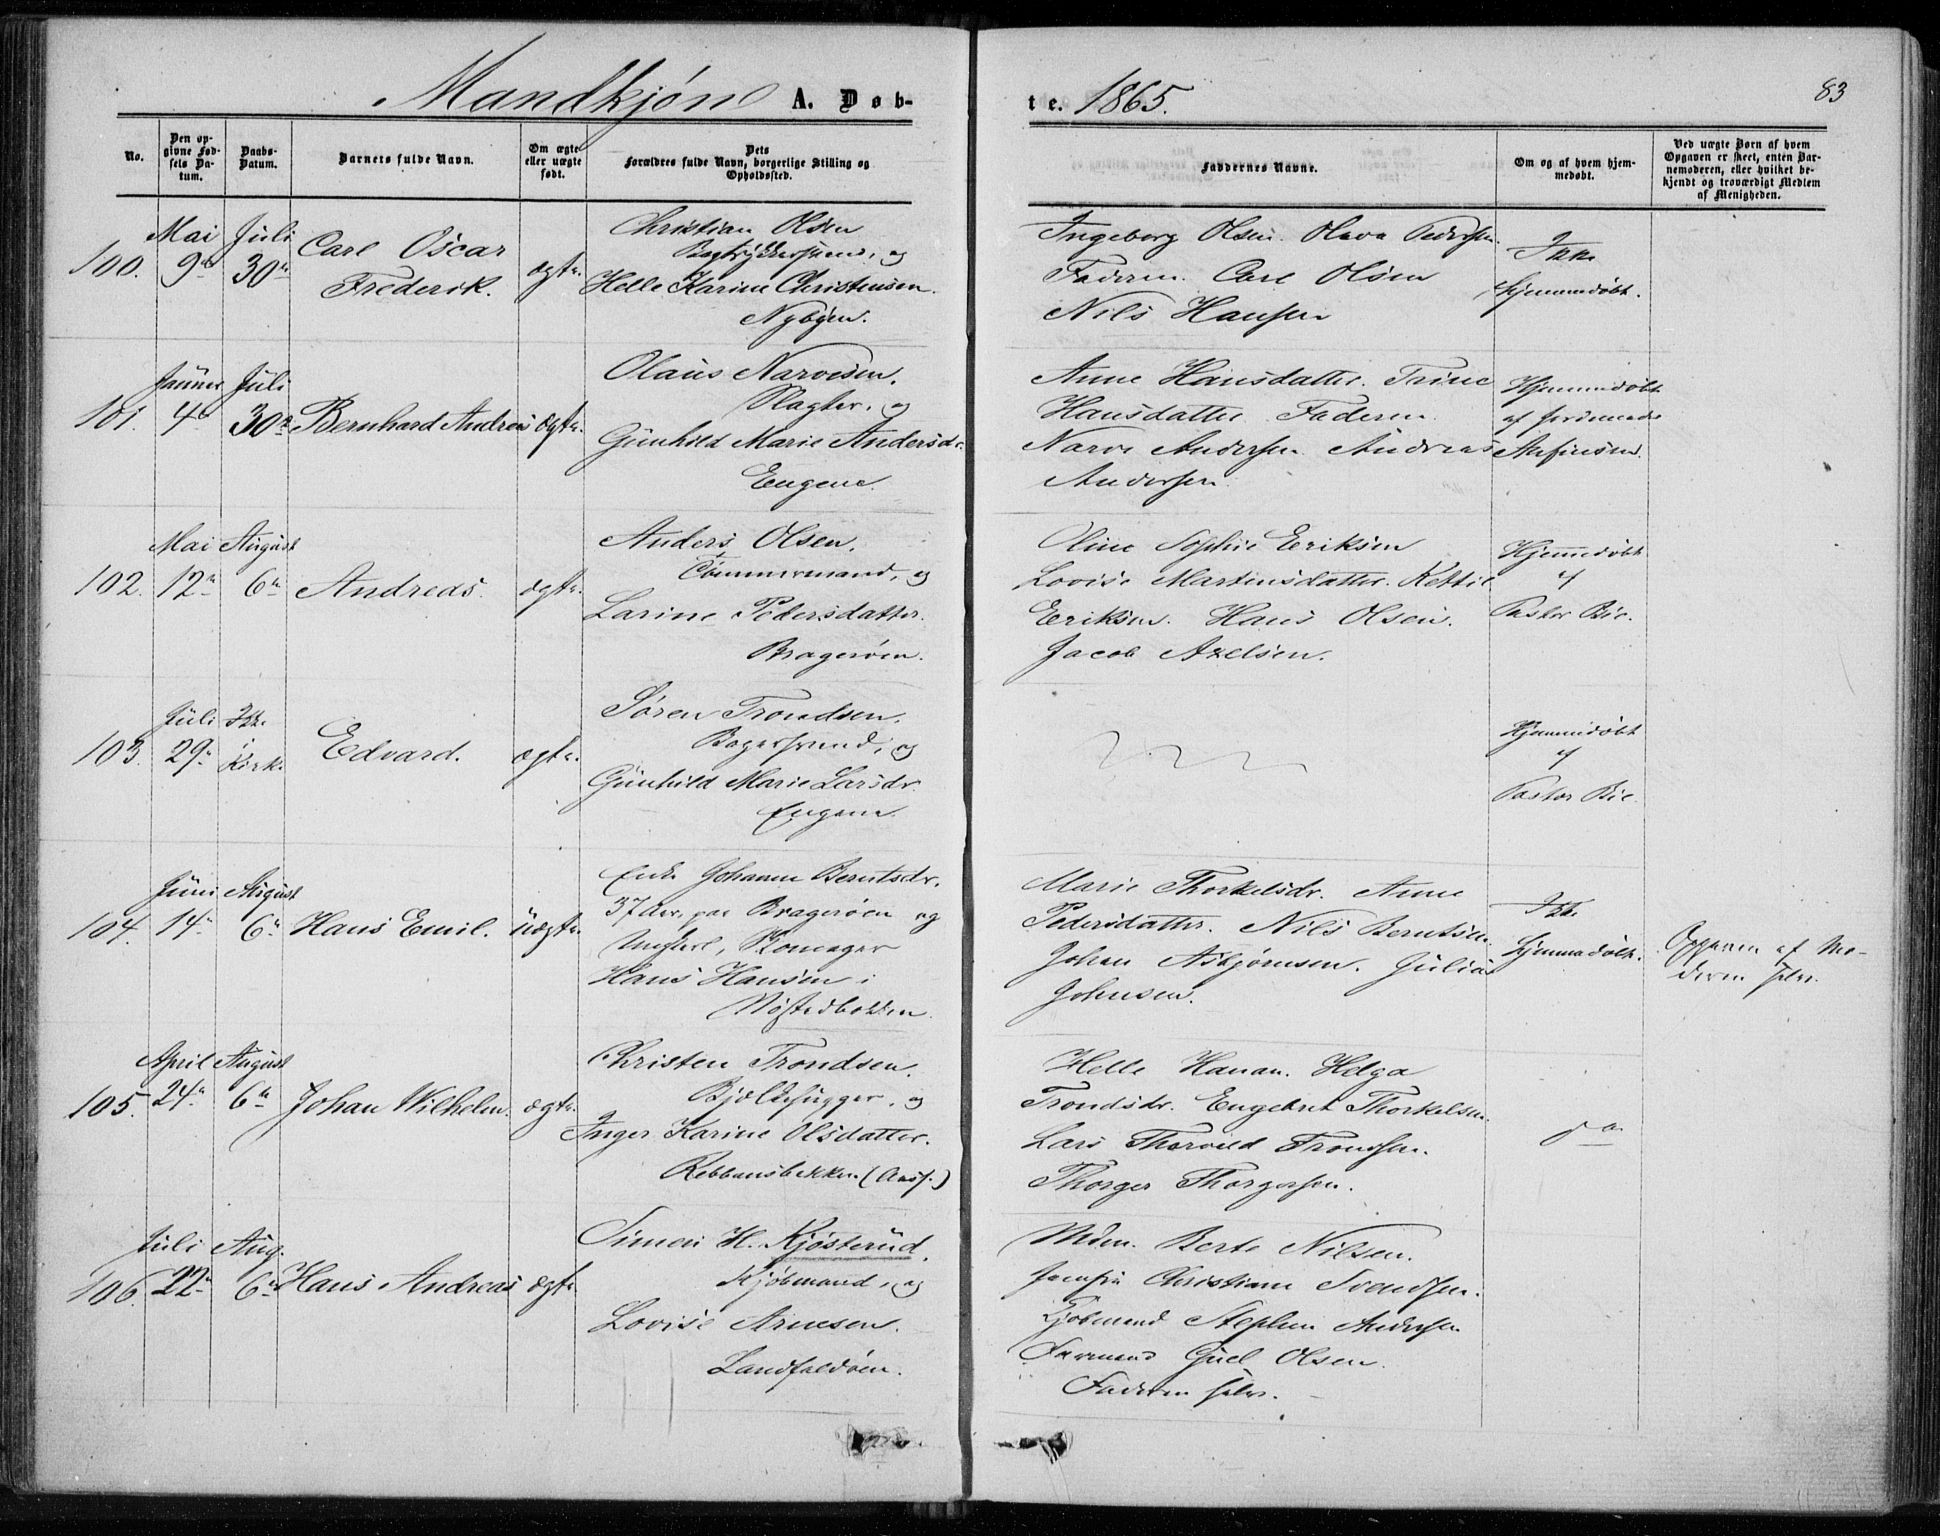 Mandkjøn A. Døb-
te. 1865.
83
No.
Den opgivne Fødsels Datum.
Daabs-Datum.
Barnets fulde Navn.
Om ægte eller uægte født.
Dets Forældres fulde Navn, borgerlige Stilling og Opholdssted.
Faddernes Navne.
Om og af hvem hjemmedøbt.
Ved uægte Børn af hvem Opgaven er skeet, enten Barnemoderen, eller hvilket bekjendt og troværdigt Medlem af Menigheden.
100.
Mai 9de
Juli 30te
Carl Oscar
Frederik.
ægte.
Christian Olsen
og
Helle Karine Christensen.
Nybyen.
Ingeborg Olsen. Olava Pedersen.
Faderen. Carl Olsen
Nils Hansen
Ikke
hjemmedøbt.
101.
4
Juli 30te
Bernhard Andreas
ægte.
Olaus Narvesen,
Slagter, og
Gunhild Marie Andersdr.
Engene.
Anne Hansdatter. Trine
Hansdatter. Faderen.
Narve Andersen. Andreas
Andersen.
Hjemmedøbt
af Jordmoder
102.
Mai 12te
August 6te
Andreas.
ægte.
Anders Olsen,
Tømmermand, og
Larine Pedersdatter.
Bragerøen.
Oline Sophie Eriksen
Lovise Martinsdatter. Kettil
Eriksen. Hans Olsen.
Jacob Axelsen.
Hjemmedøbt
af
Pastor Bie.
103.
Juli 29de
Ikke
i
Kirke
Edvard.
ægte.
Søren Trondsen,
Bagersvend, og
Gunhild Marie Larsdr.
Engene.
Hjemmedøbt
af
Pastor Bie.
104.
Juni 14de
August 6te
Hans Emil.
Uægte.
Enke Johanne Berntsdr.
37 Aar, paa Bragerøen og
Ungkarl, Skomager
Hans Hansen i
Nøstedbakken.
Marie Thorkelsdr. Anne
Pedersdatter. Nils Berntsen.
Johan Asbjørnsen. Julius
Johnsen.
Ikke
hjemmedøbt.
Opgaven af Mo-
deren selv.
105.
April 24de
August 6te
Johan Wilhelm.
ægte.
Christen Trondsen,
Bjælkehugger, og
Inger Karine Olsdatter.
Rebbansbakken (Aass.)
Helle Hanan. Helga
Trondsdr. Engebret Thorkelsen.
Lars Thorvald Trondsen.
Thorger Thorgersen.
do
106.
Juli 22de
Aug. 6te
Hans Andreas
ægte.
Simen H. Kjøsterud,
Kjøbmand, og
Lovise Arnesen.
Landfaldøen.
Mdm. Berte Nilsen.
Jomfru Christiane Svendsen.
Kjøbmand Stephen Andersen
Juel Olsen.
Faderen selv.